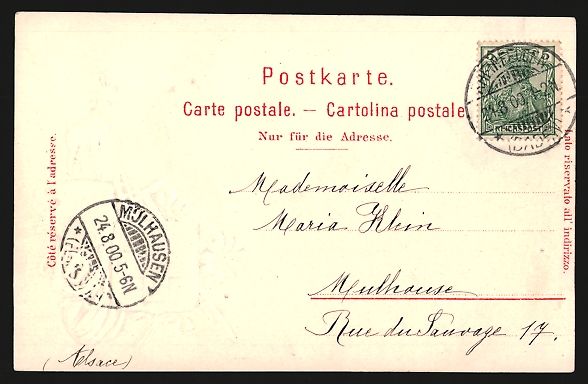 Postkarte.
Carte postale. — Cartolina postale
Nur für die Adresse.
Côté réservé à l'adresse.
lato riservato all' indirizzo.
REICHSPOST
(BADEN)
MÜLHAUSEN
24.8.00.5-6N
Mademoiselle
Maria Klein
Mulhouse
Rue du Sauvage 17.
(Alsace)